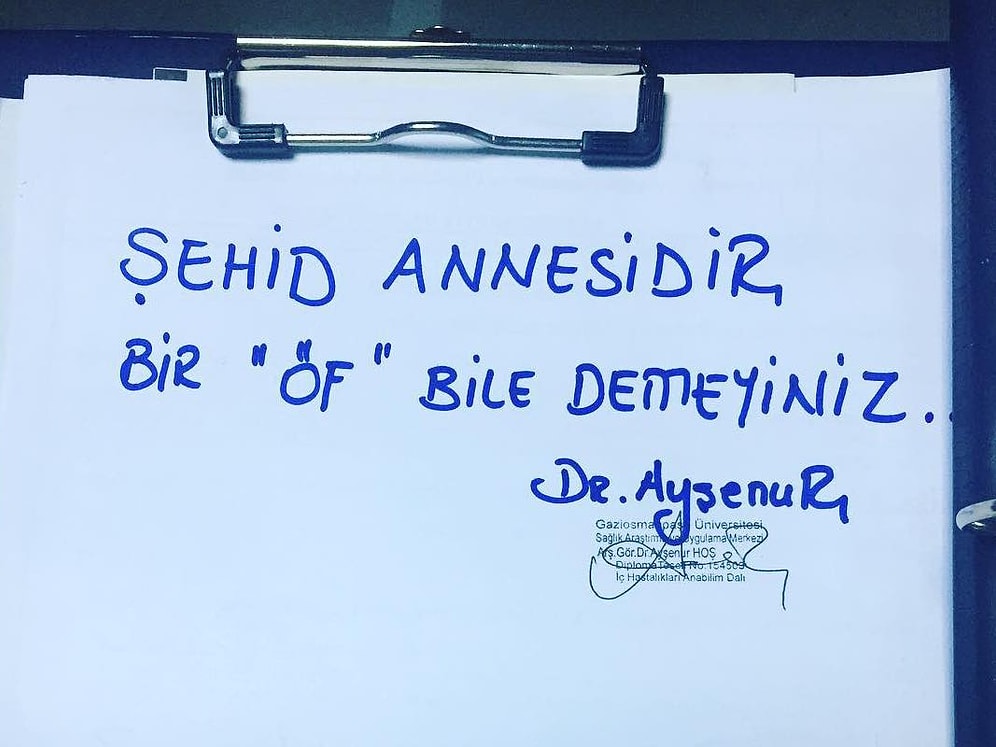 ŞEHİD ANNESİDİR
BİR "ÖF" BİLE DEMEYİNİZ..
Dr. Ayşenur
Gaziosmanpaşa Üniversitesi
Sağlık Araştırma ve Uygulama Merkezi
Arş.Gör.Dr.Ayşenur HOŞ
Diploma Tescil No:154509
İç Hastalıkları Anabilim Dalı